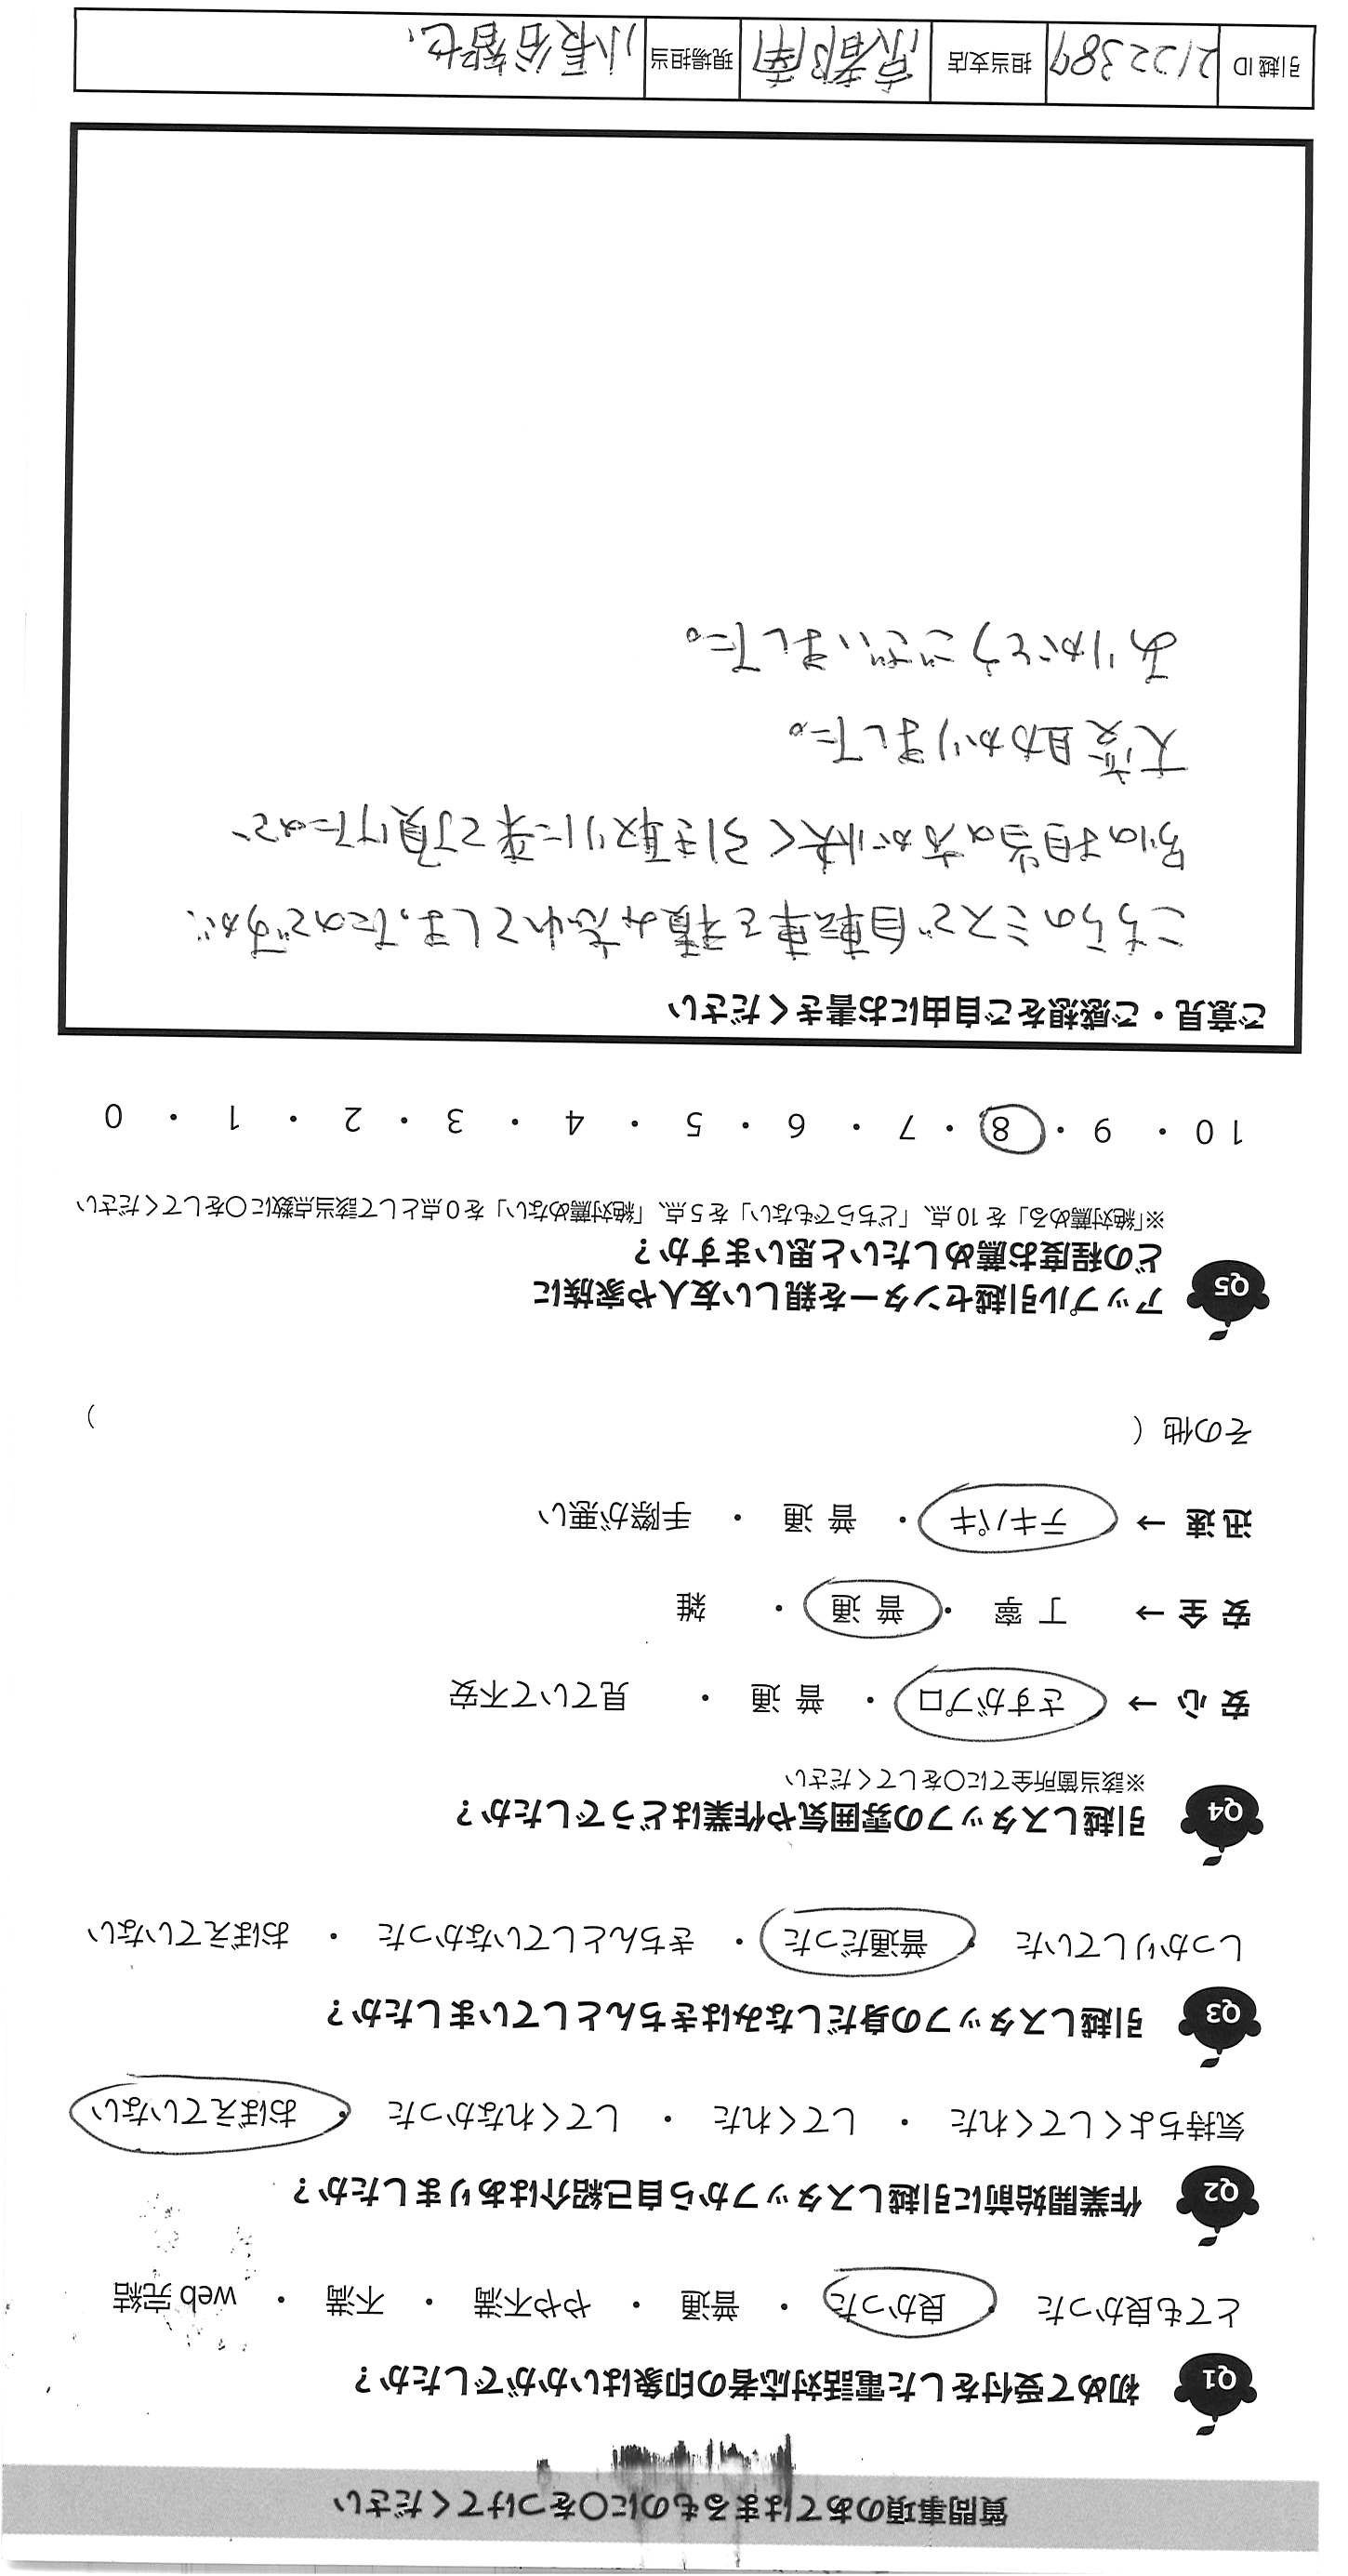 質問事項のあてはまるものに〇をつけてください
Q1 初めて受付をした電話対応者の印象はいかがでしたか？
とても良かった ・ 良かった ・ 普通 ・ やや不満 ・ 不満 ・ web完結
Q2 作業開始前に引越しスタッフから自己紹介はありましたか？
気持ちよくしてくれた ・ してくれた ・ してくれなかった ・ おぼえていない
Q3 引越しスタッフの身だしなみはきちんとしていましたか？
しっかりしていた ・ 普通だった ・ きちんとしていなかった ・ おぼえていない
Q4 引越しスタッフの雰囲気や作業はどうでしたか？
※該当箇所全てに〇をしてください
安心 → さすがプロ ・ 普通 ・ 見ていて不安
安全 → 丁寧 ・ 普通 ・ 雑
迅速 → テキパキ ・ 普通 ・ 手際が悪い
その他（ ）
Q5 アップル引越センターを親しい友人や家族に
どの程度お薦めしたいと思いますか？
※「絶対薦める」を10点、「どちらでもない」を5点、「絶対薦めない」を0点として該当点数に〇をしてください
10 ・ 9 ・ 8 ・ 7 ・ 6 ・ 5 ・ 4 ・ 3 ・ 2 ・ 1 ・ 0
ご意見・ご感想をご自由にお書きください
こちらのミスで自転車を積み忘れてしまったのですが、
別の担当の方が快く引き取りに来て頂けたので
大変助かりました。
ありがとうございました。
引越ID 2122389 担当支店 京都南 現場担当 小長谷智也